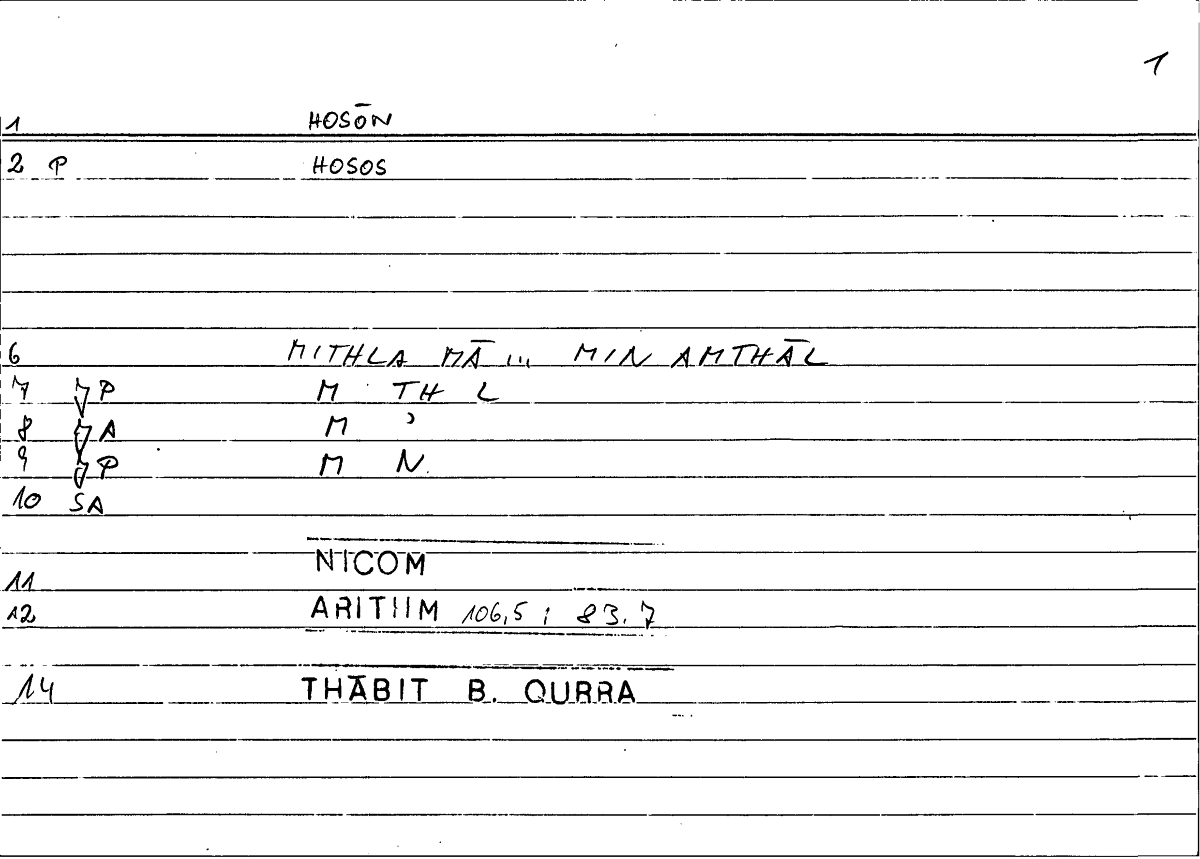 1
1 HOSŌN
2 P HOSOS
6 MITHLA MĀ ... MIN AMTHĀL
7 7 P M TH L
8 7 A M ʾ
9 7 P M N
10 SA
NICOM
11
12 ARITHM 106,5 ; 83.7
14 THĀBIT B. QURRA